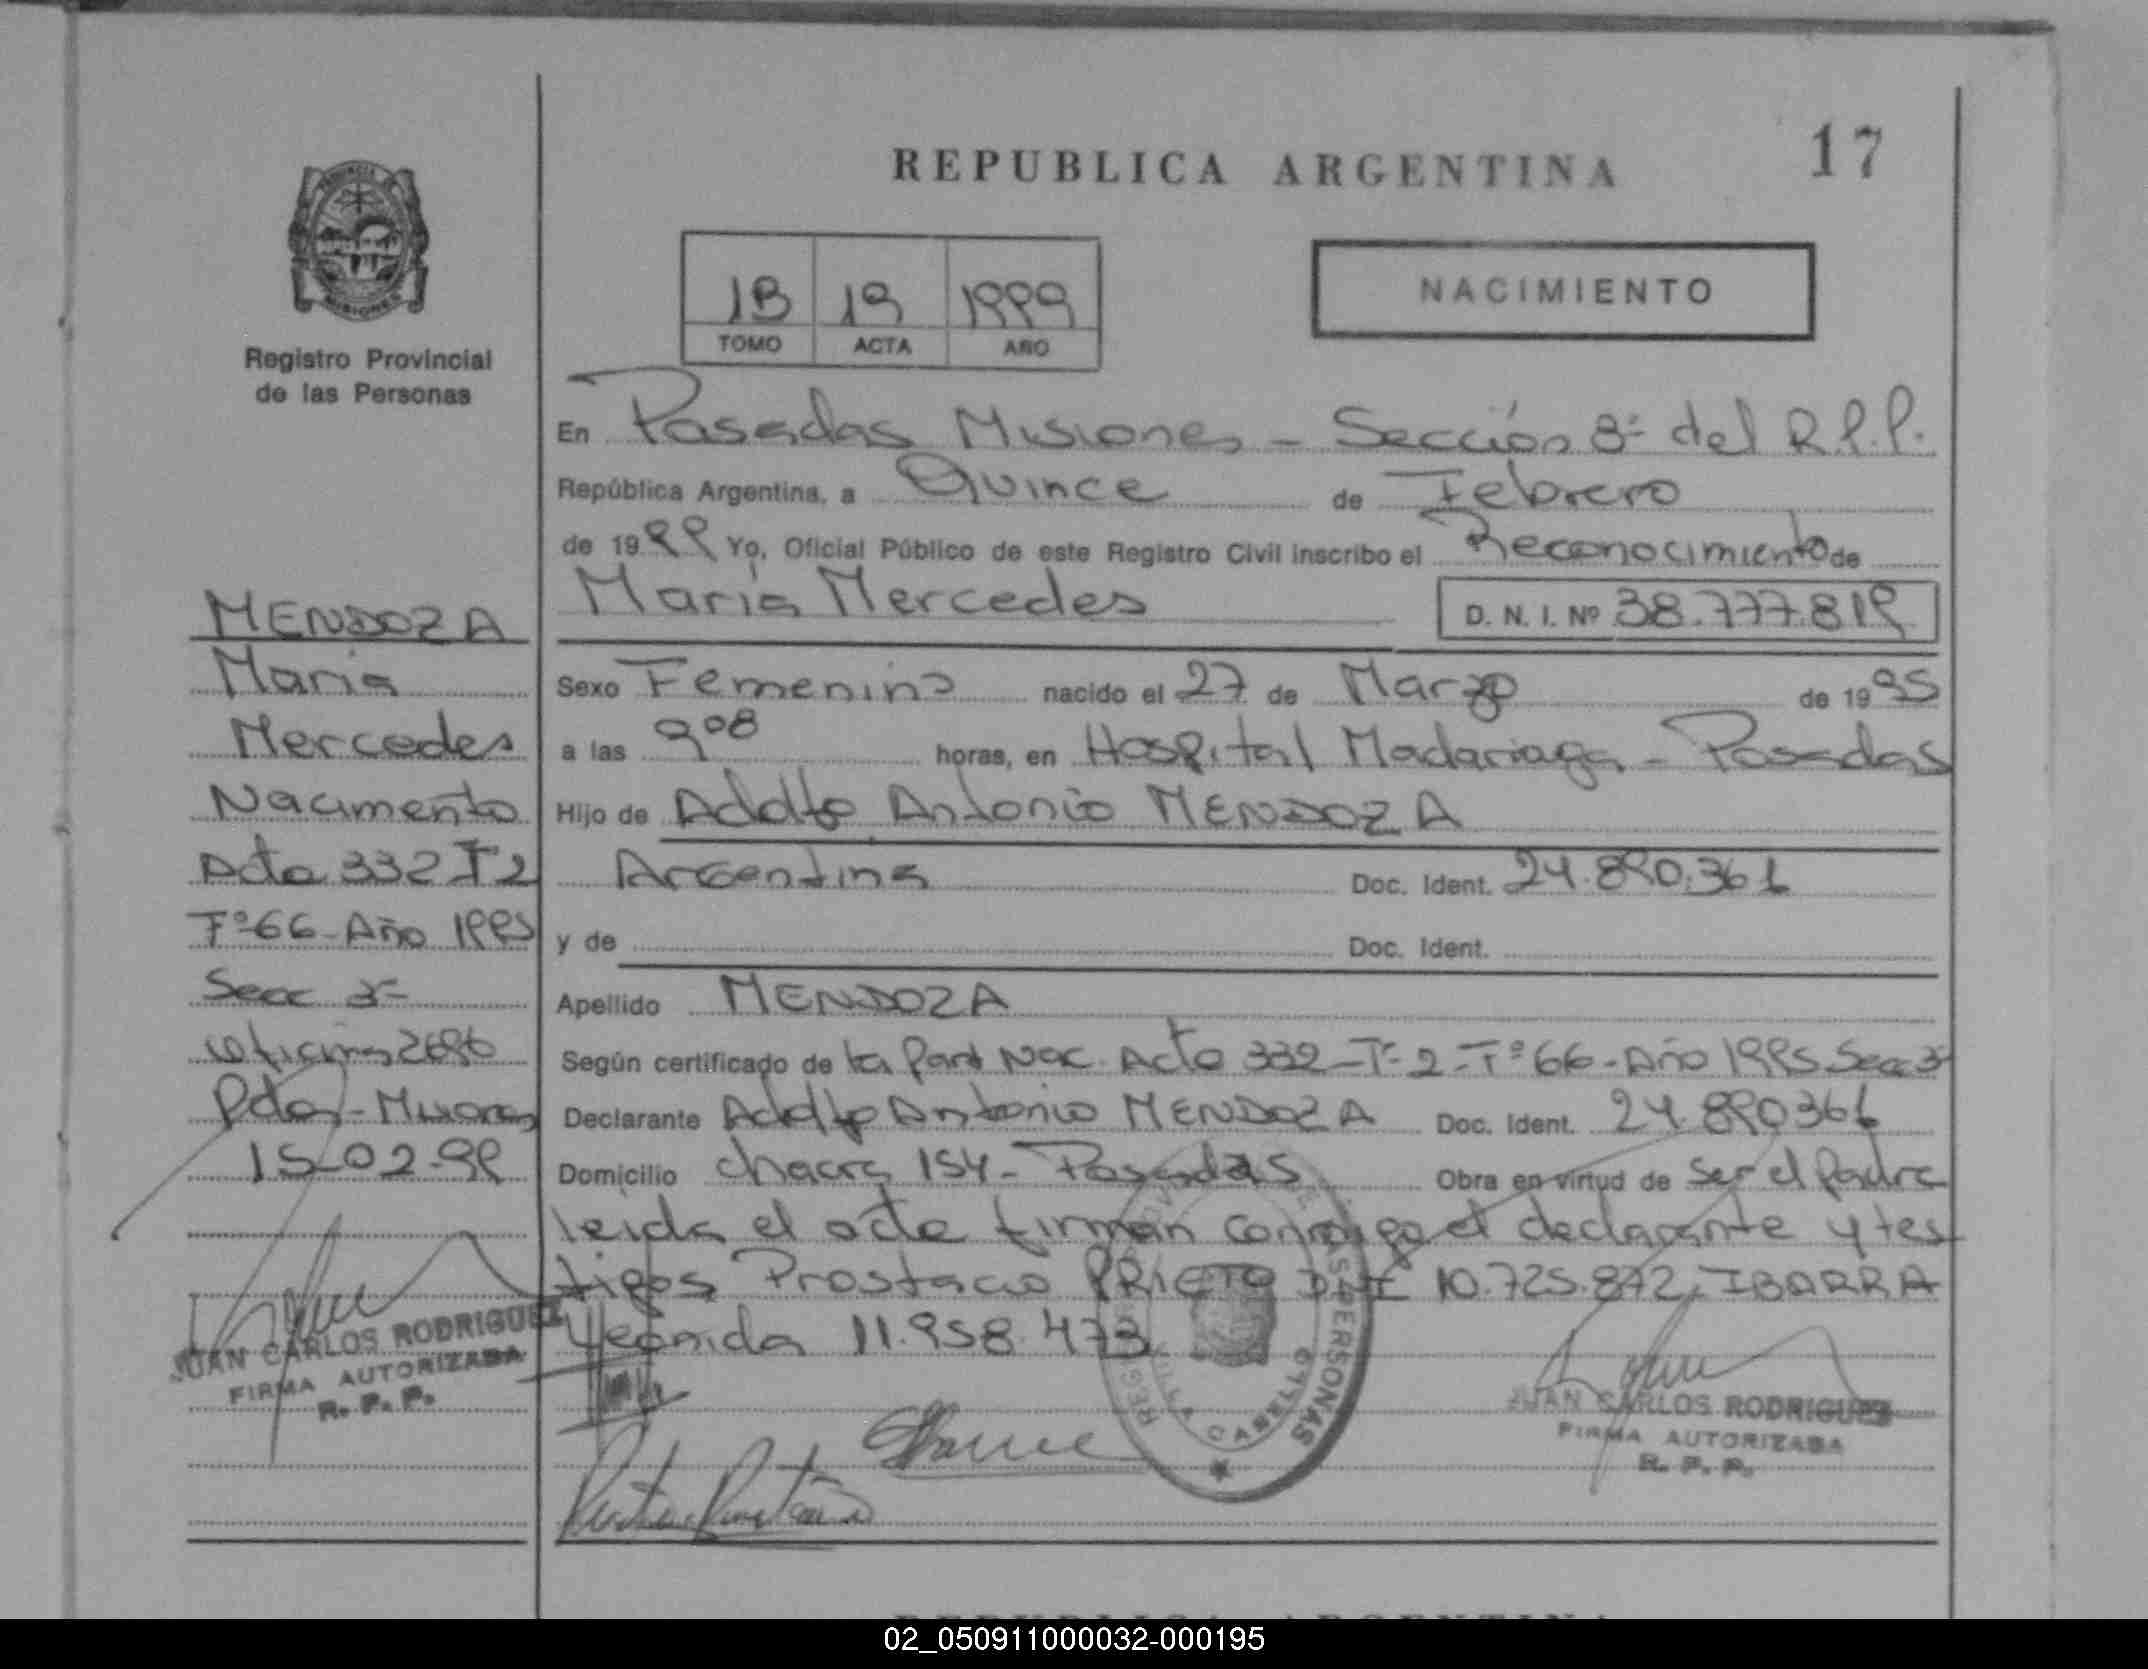 REPUBLICA ARGENTINA
17
Registro Provincial
de las Personas
1B 19 1999
TOMO ACTA AÑO
NACIMIENTO
En Posadas Misiones - Sección 8ª del R.P.P.
República Argentina, a Quince de Febrero
de 1999 Yo, Oficial Público de este Registro Civil inscribo el Reconocimiento de
María Mercedes D. N. I. Nº 38.777.819
Sexo Femenino nacido el 27 de Marzo de 1995
a las 9 08 horas, en Hospital Madariaga - Posadas
Hijo de Adolfo Antonio MENDOZA
Argentina Doc. Ident. 24.890.361
y de Doc. Ident.
Apellido MENDOZA
Según certificado de la Part Nac. Acta 332-Tº2-Fº66-Año 1995 Secc 3ª
Declarante Adolfo Antonio MENDOZA Doc. Ident. 24.890361
Domicilio chacra 154 - Posadas Obra en virtud de Ser el Padre
leida el acta firman conmigo el declarante y tes
tigos Prostacio PRIETO DNI 10.725.872, IBARRA
Leonida 11.958.473
MENDOZA
María
Mercedes
Nacimento
Acta 332 T2
Fº66-Año 1995
Secc 3ª
Pdas-Misiones
15-02-99
JUAN CARLOS RODRIGUEZ
FIRMA AUTORIZADA
R. P. P.
VILLA CABELLO
PERSONAS
JUAN CARLOS RODRIGUEZ
FIRMA AUTORIZADA
R. P. P.
REPUBLICA ARGENTINA
02_050911000032-000195